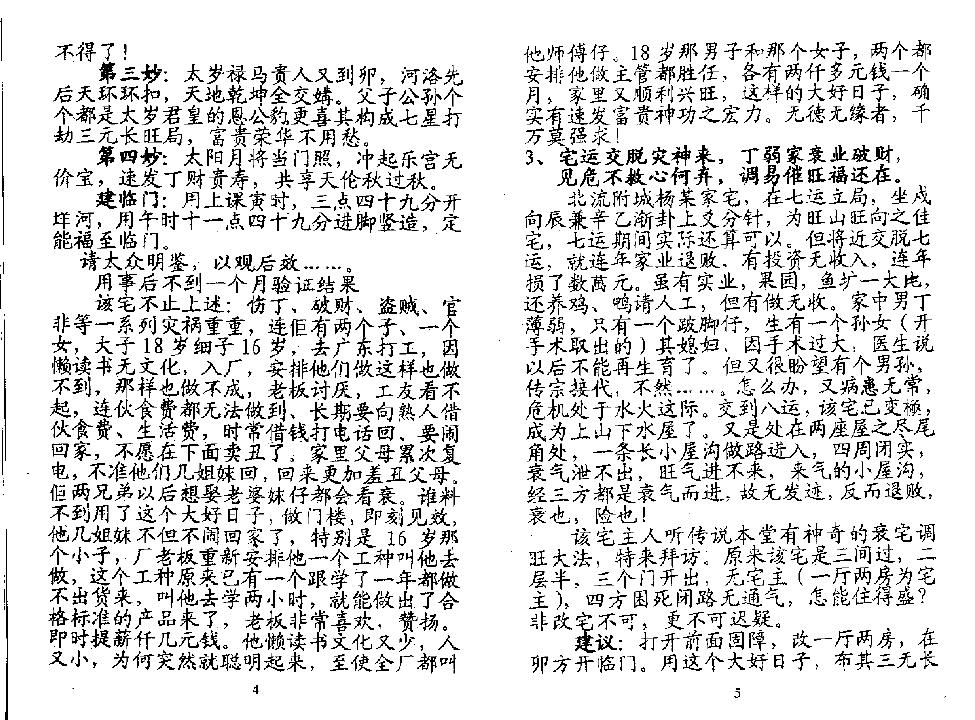 不得了！
第三妙：太岁禄马贵人又到卯，河洛先
后天环环扣，天地乾坤全交媾。父子公孙个
个都是太岁君皇的恩公豹更喜其构成七星打
劫三元长旺局，富贵荣华不用愁。
第四妙：太阳月将当门照，冲起乐宫无
价宝，速发丁财贵寿，共享天伦秋过秋。
建临门：用上课寅时，三点四十九分开
垟河，用午时十一点四十九分进脚竖造，定
能福至临门。
请太众明鉴，以观后效……。
用事后不到一个月验证结果
该宅不止上述：伤丁、破财、盗贼、官
非等一系列灾祸重重，连佢有两个子、一个
女，大子18岁细子16岁，去广东打工，因
懒读书无文化，入厂，安排他们做这样也做
不到，那样也做不成，老板讨厌，工友看不
起，连伙食费都无法做到、长期要向熟人借
伙食费、生活费，时常借钱打电话回、要闹
回家，不愿在下面卖丑了。家里父母累次复
电，不准他们几姐妹回，回来更加羞丑父母。
佢两兄弟以后想娶老婆妹仔都会看衰。谁料
不到用了这个大好日子，做门楼，即刻见效，
他几姐妹不但不闹回家了，特别是16岁那
个小子，厂老板重新安排他一个工种叫他去
做，这个工种原来已有一个跟学了一年都做
不出货来，叫他去学两小时，就能做出了合
格标准的产品来了，老板非常喜欢，赞扬。
即时提薪仟几元钱。他懒读书文化又少，人
又小，为何突然就聪明起来，至使全厂都叫
4
他师傅仔。18岁那男子和那个女子，两个都
安排他做主管都胜任，各有两仟多元钱一个
月，家里又顺利兴旺，这样的大好日子，确
实有速发富贵神功之宏力。无德无缘者，千
万莫强求！
3、宅运交脱灾神来，丁弱家衰业破财，
见危不救心何弃，调易催旺福还在。
北流附城杨某家宅，在七运立局，坐戌
向辰兼辛乙渐卦上爻分针，为旺山旺向之佳
宅，七运期间实际还算可以。但将近交脱七
运，就连年家业退败，有投资无收入，连年
损了数萬元。虽有实业，果园，鱼圹一大比，
还养鸡、鸭请人工，但有做无收。家中男丁
薄弱，只有一个跛脚仔，生有一个孙女（开
手术取出的）其媳妇，因手术过大，医生说
以后不能再生育了。但又很盼望有个男孙，
传宗接代，不然……。怎么办，又病患无常，
危机处于水火这际。交到八运，该宅已变極，
成为上山下水屋了。又是处在两座屋之尽尾
角处，一条长小屋沟做路进入，四周闭实，
衰气泄不出，旺气进不来，来气的小屋沟，
经三方都是衰气而进，故无发迹，反而退败，
衰也，险也！
该宅主人听传说本堂有神奇的衰宅调
旺大法，特来拜访。原来该宅是三间过，二
层半，三个门开出，无宅主（一厅两房为宅
主），四方困死闭路无通气，怎能住得盛？
非改宅不可，更不可迟疑。
建议：打开前面围障，改一厅两房，在
卯方开临门。用这个大好日子，布其三元长
5